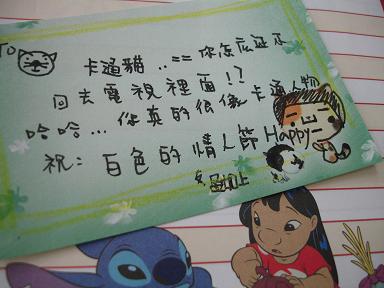 TO
卡通貓..== 你怎麼還不
回去電視裡面!?
哈哈... 你真的很像卡通人物
祝: 白色的情人節 Happy~
上